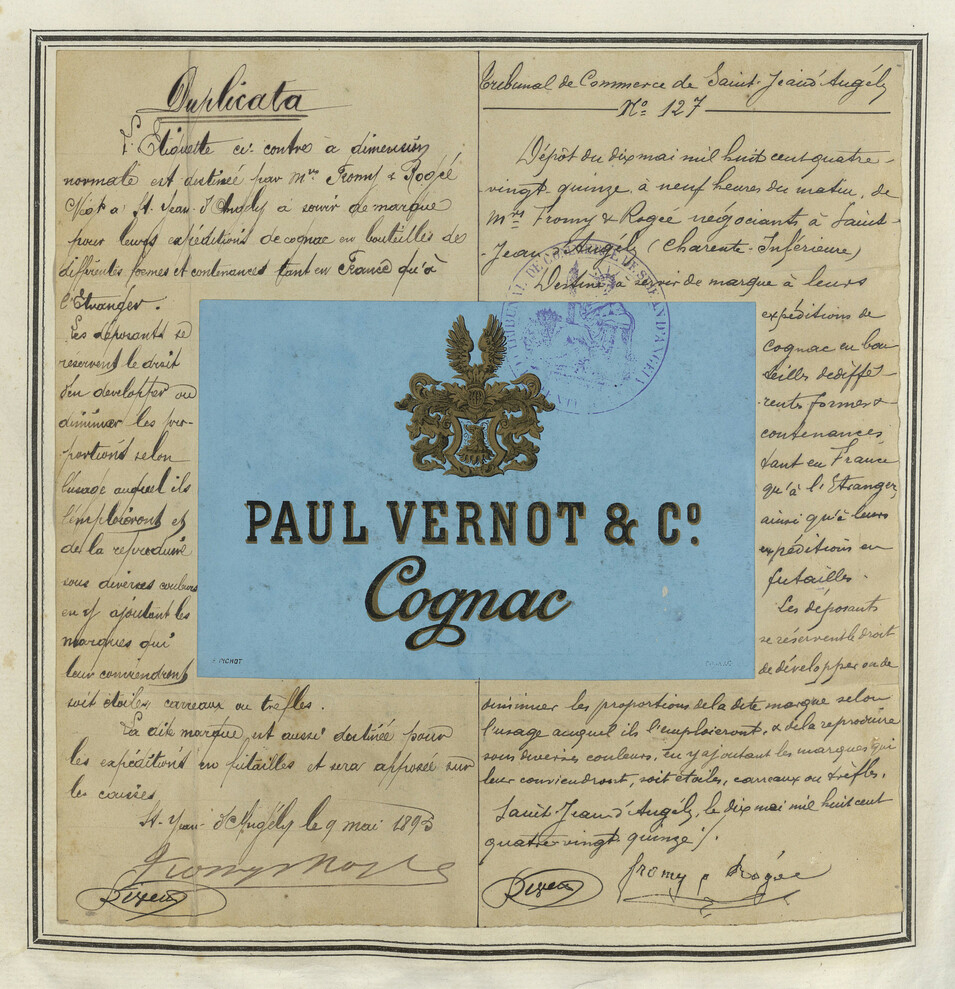 Duplicata
L'Etiquette ci-contre à dimension
normale est destinée par Mrs Fromy & Rogée
Négts à St-Jean-d'Angély à servir de marque
pour leurs expéditions de cognac en bouteilles de
différentes formes et contenances tant en France qu'à
l'Etranger.
Les déposants se
réservent le droit
d'en développer ou
diminuer les pro-
portions selon
l'usage auquel ils
l'emploieront et
de la reproduire
sous diverses couleurs
en y ajoutant les
marques qui
leur conviendront
soit étoiles carreaux ou trèfles.
La dite marque est aussi destinée pour
les expéditions en futailles et sera apposée sur
les caisses
St-Jean-d'Angély le 9 mai 1895
Tribunal de Commerce de Saint-Jean d'Angély
No 127
Dépôt du dix mai mil huit cent quatre-
vingt-quinze, à neuf heures du matin, de
Mrs Fromy & Rogée négociants à Saint-
Jean-d'Angély (Charente-Inférieure)
Destiné à servir de marque à leurs
expéditions de
Cognac en bou
teilles de diffé-
rentes formes &
contenances
tant en France
qu'à l'Etranger,
ainsi qu'à leurs
expéditions en
futailles.
Les déposants
se réservent le droit
de développer ou de
diminuer les proportions de la dite marque selon
l'usage auquel ils l'emploieront, & de la reproduire
sous diverses couleurs, en y ajoutant les marques qui
leur conviendront, soit étoiles, carreaux ou trèfles.
Saint-Jean d'Angély, le dix mai mil huit cent
quatre vingt quinze/.
Fromy & Rogée
TRIBUNAL DE COMMERCE DE ST JEAN D'ANGELY
PAUL VERNOT & Co.
Cognac
PICHOT